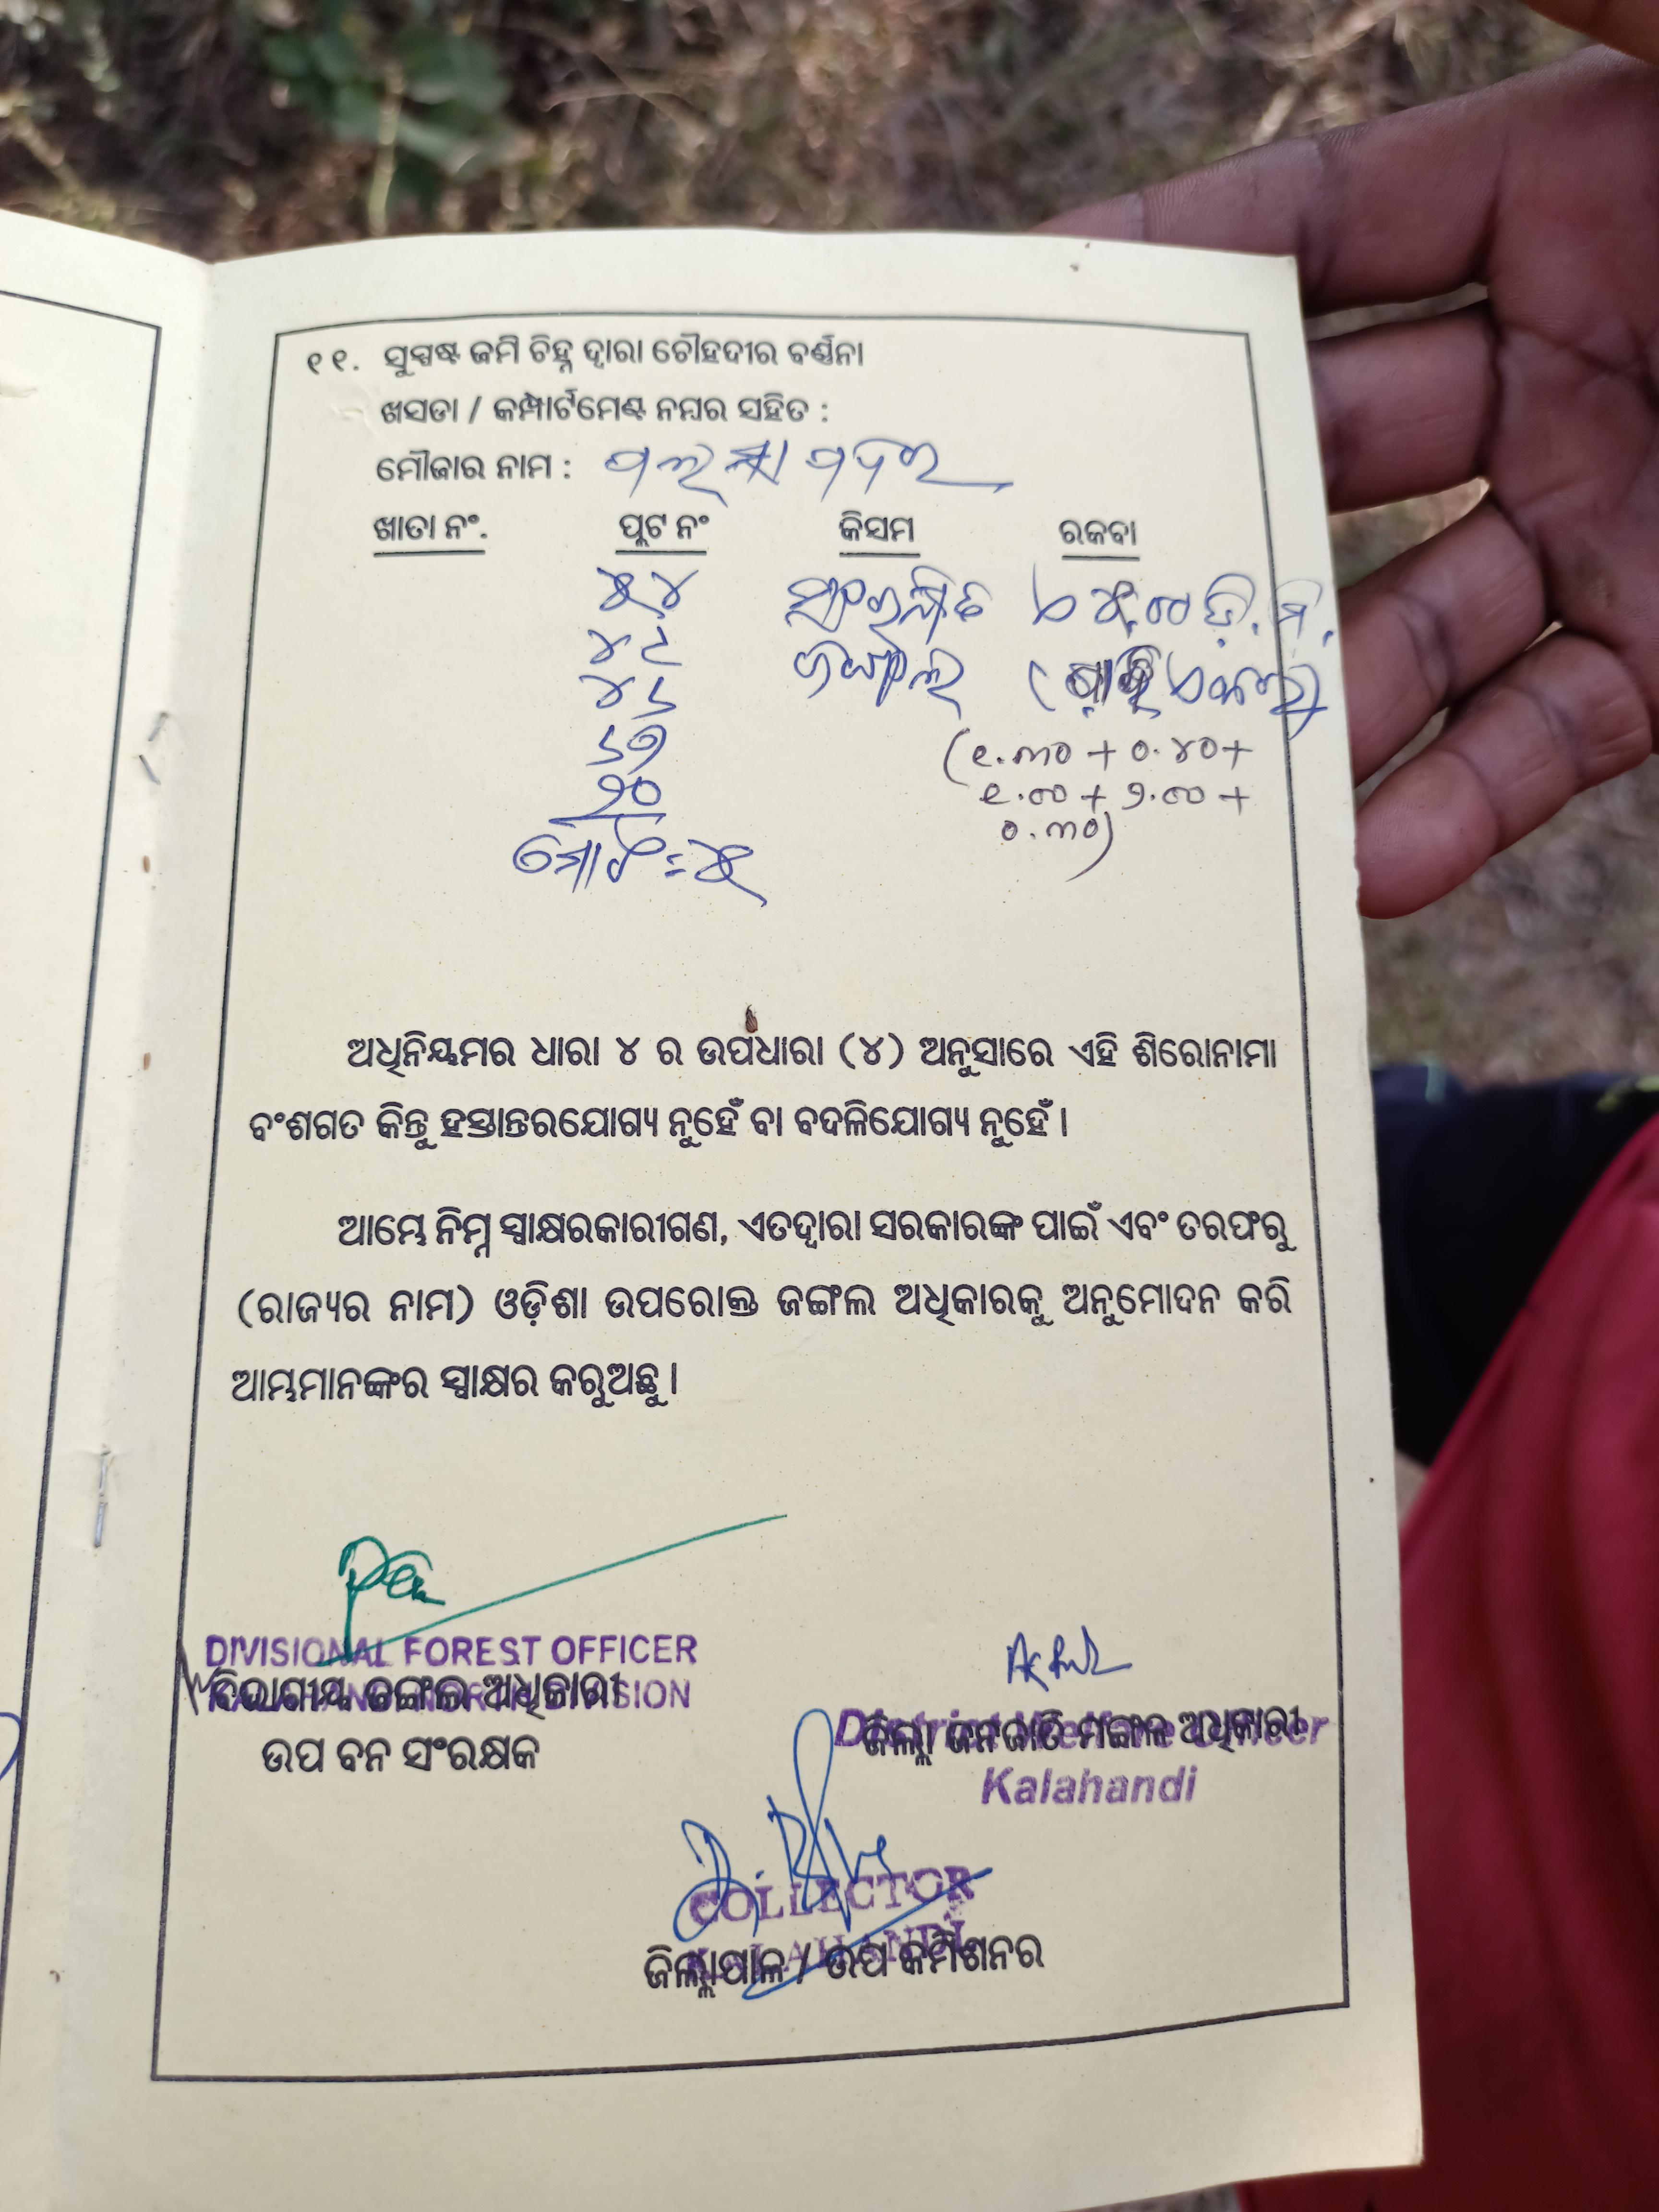 ୧୧. ସୁସ୍ପଷ୍ଟ ଜମି ଚିହ୍ନ ଦ୍ୱାରା ଚୌହଦୀର ବର୍ଣ୍ଣନା
ଖସଡା / କମ୍ପାର୍ଟମେଣ୍ଟ ନମ୍ବର ସହିତ :
ମୌଜାର ନାମ :
ଖାତା ନଂ. ପ୍ଲଟ ନଂ କିସମ ରକବା
ସଂରକ୍ଷିତ
ଜଙ୍ଗଲ
୬୭
(୧.୩୦ + ୦.୪୦+
୨୦ ୧.୦୦ + ୨.୦୦ +
୦.୩୦)
ମୋଟ = ୫
ଅଧିନିୟମର ଧାରା ୪ ର ଉପଧାରା (୪) ଅନୁସାରେ ଏହି ଶିରୋନାମା
ବଂଶଗତ କିନ୍ତୁ ହସ୍ତାନ୍ତରଯୋଗ୍ୟ ନୁହେଁ ବା ବଦଳିଯୋଗ୍ୟ ନୁହେଁ ।
ଆମ୍ଭେ ନିମ୍ନ ସ୍ୱାକ୍ଷରକାରୀଗଣ, ଏତଦ୍ୱାରା ସରକାରଙ୍କ ପାଇଁ ଏବଂ ତରଫରୁ
(ରାଜ୍ୟର ନାମ) ଓଡ଼ିଶା ଉପରୋକ୍ତ ଜଙ୍ଗଲ ଅଧିକାରକୁ ଅନୁମୋଦନ କରି
ଆମ୍ଭମାନଙ୍କର ସ୍ୱାକ୍ଷର କରୁଅଛୁ ।
DIVISIONAL FOREST OFFICER
ବିଭାଗୀୟ ଜଙ୍ଗଲ ଅଧିକାରୀ
ଉପ ବନ ସଂରକ୍ଷକ
ଜିଲ୍ଲା ଜନଜାତି ମଙ୍ଗଳ ଅଧିକାରୀ
Kalahandi
COLLECTOR
ଜିଲ୍ଲାପାଳ / ଉପ କମିଶନର